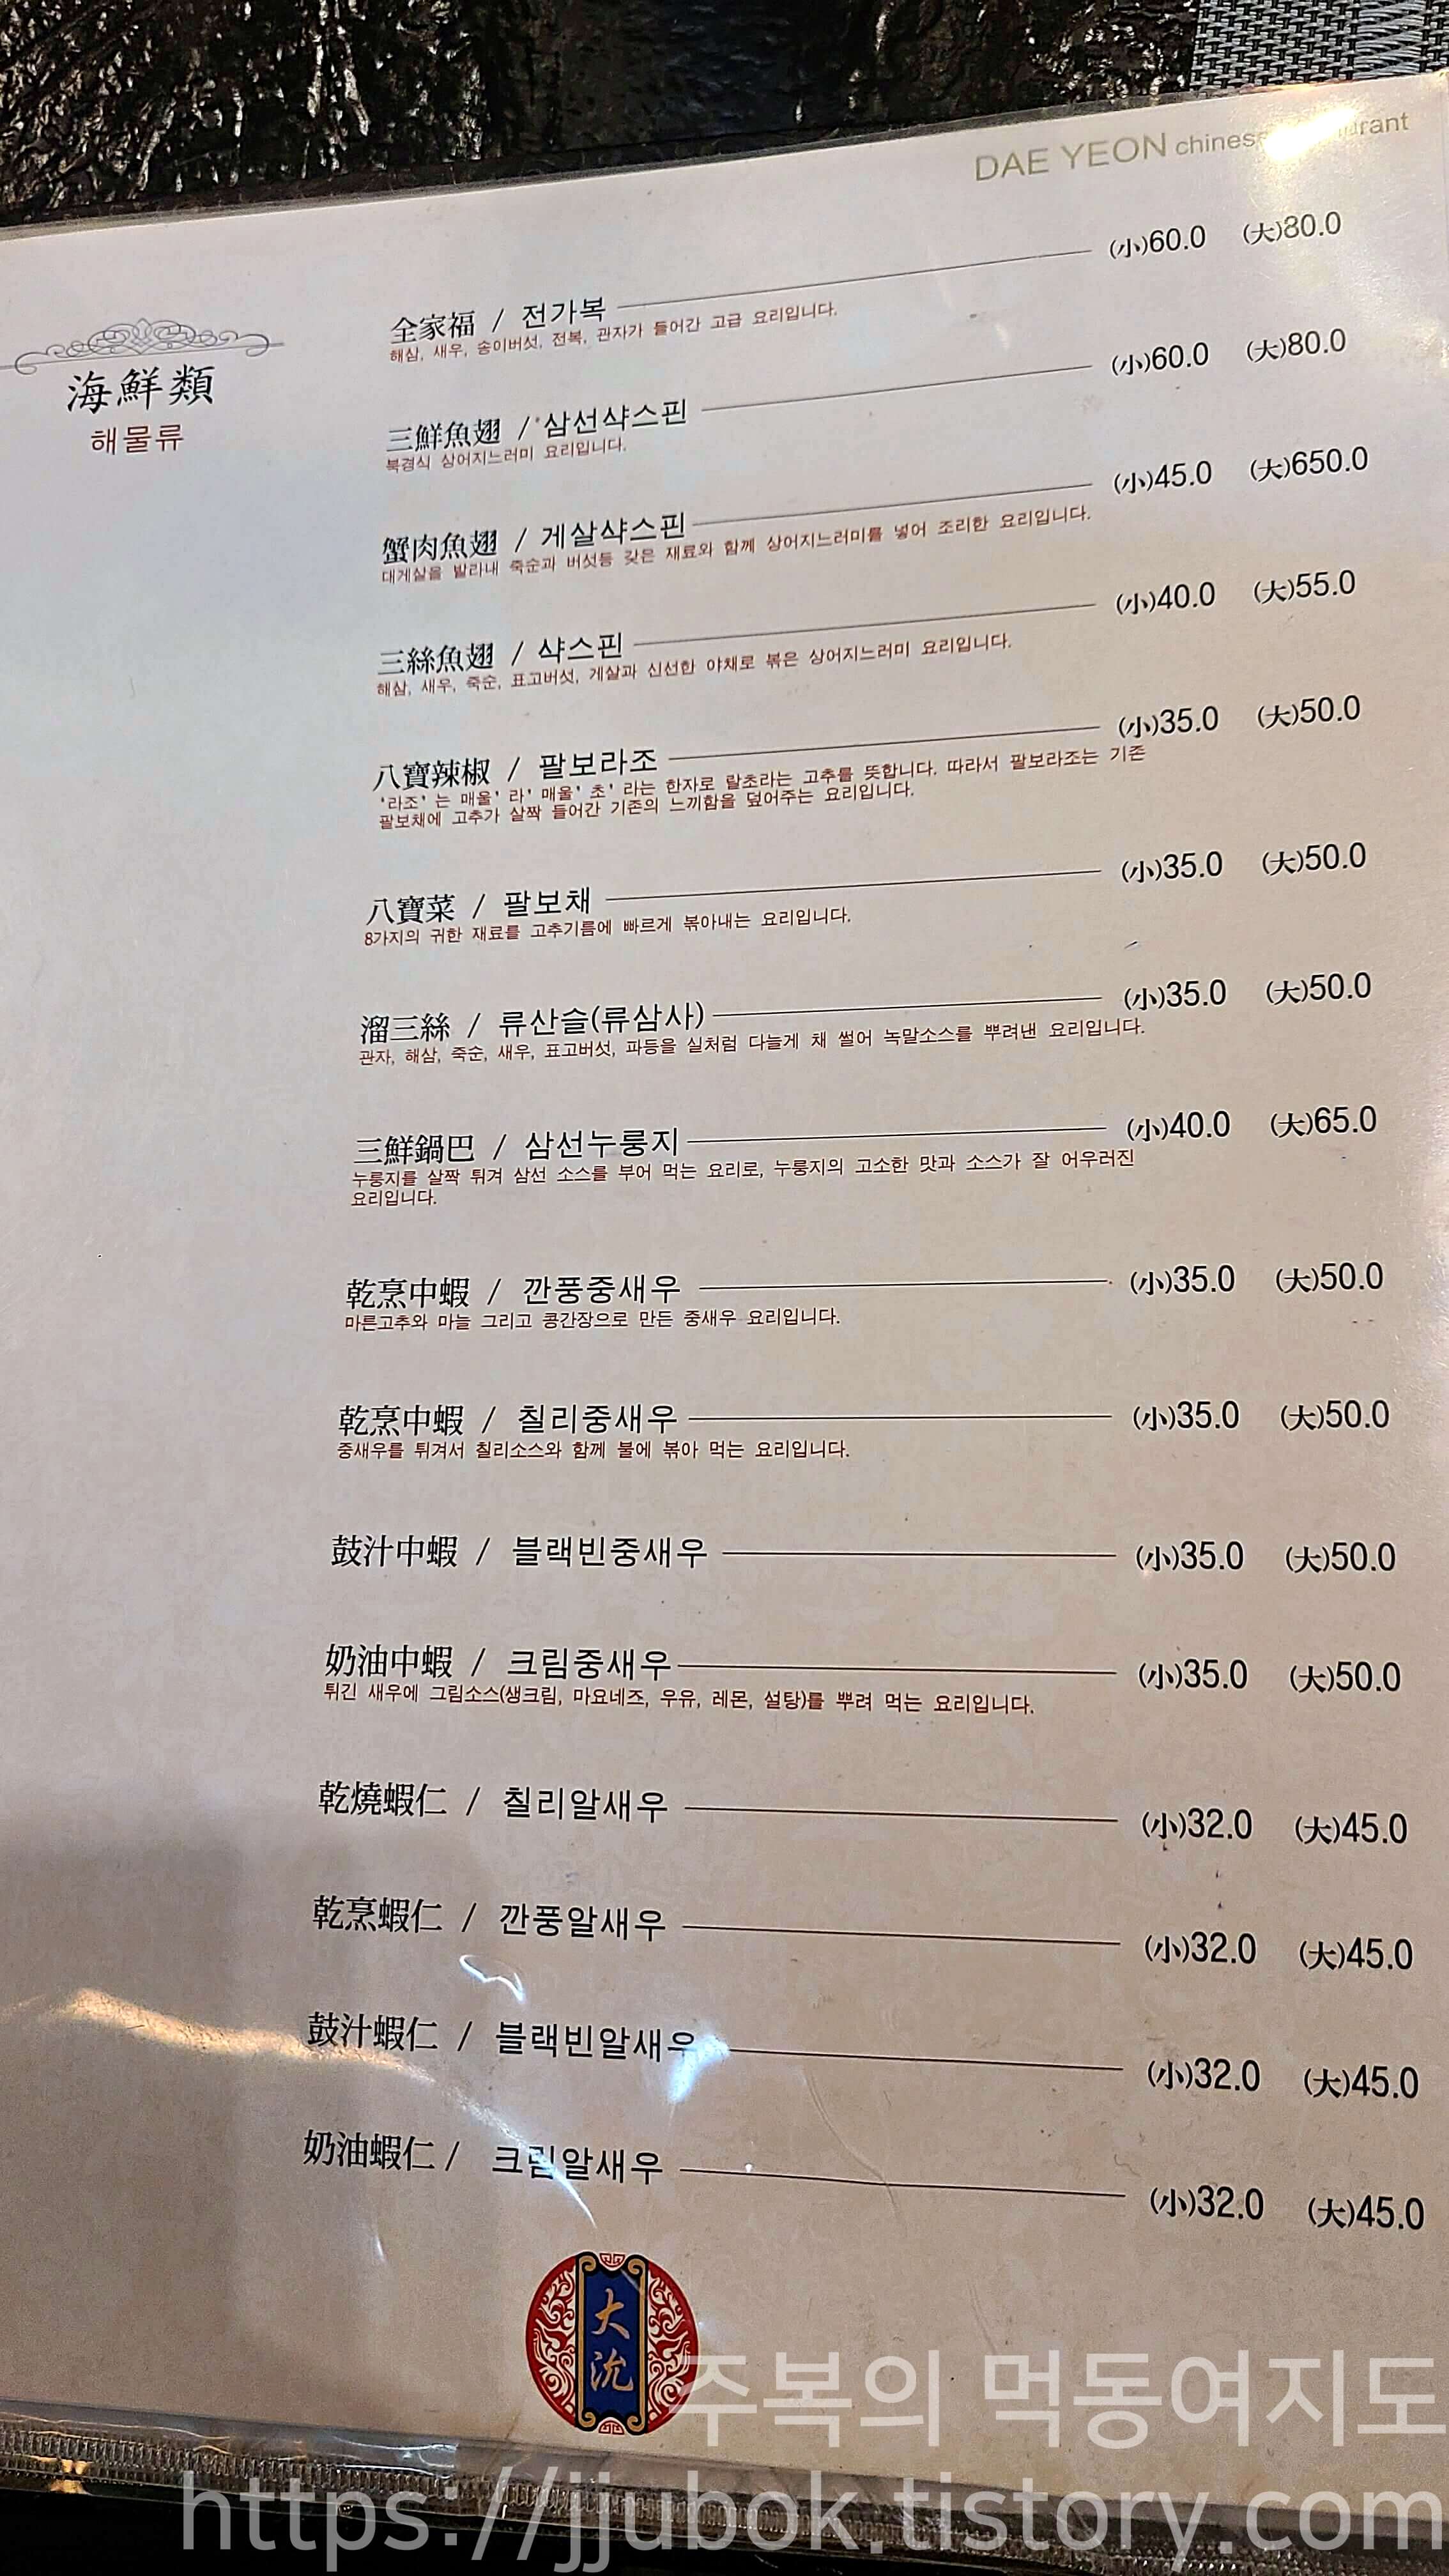 DAE YEON chinese
海鮮類
해물류
全家福 / 전가복 (小)60.0 (大)80.0
해삼, 새우, 송이버섯, 전복, 관자가 들어간 고급 요리입니다.
三鮮魚翅 / 삼선샥스핀 (小)60.0 (大)80.0
북경식 상어지느러미 요리입니다.
蟹肉魚翅 / 게살샥스핀 (小)45.0 (大)650.0
대게살을 발라내 죽순과 버섯등 갖은 재료와 함께 상어지느러미를 넣어 조리한 요리입니다.
三絲魚翅 / 샥스핀 (小)40.0 (大)55.0
해삼, 새우, 죽순, 표고버섯, 게살과 신선한 야채로 볶은 상어지느러미 요리입니다.
八寶辣椒 / 팔보라조 (小)35.0 (大)50.0
'라조' 는 매울' 라' 매울' 초' 라는 한자로 랄초라는 고추를 뜻합니다. 따라서 팔보라조는 기존
팔보채에 고추가 살짝 들어간 기존의 느끼함을 덮어주는 요리입니다.
八寶菜 / 팔보채 (小)35.0 (大)50.0
8가지의 귀한 재료를 고추기름에 빠르게 볶아내는 요리입니다.
溜三絲 / 류산슬(류삼사) (小)35.0 (大)50.0
관자, 해삼, 죽순, 새우, 표고버섯, 파등을 실처럼 다늘게 채 썰어 녹말소스를 뿌려낸 요리입니다.
三鮮鍋巴 / 삼선누룽지 (小)40.0 (大)65.0
누룽지를 살짝 튀겨 삼선 소스를 부어 먹는 요리로, 누룽지의 고소한 맛과 소스가 잘 어우러진
요리입니다.
乾烹中蝦 / 깐풍중새우 (小)35.0 (大)50.0
마른고추와 마늘 그리고 콩간장으로 만든 중새우 요리입니다.
乾烹中蝦 / 칠리중새우 (小)35.0 (大)50.0
중새우를 튀겨서 칠리소스와 함께 불에 볶아 먹는 요리입니다.
鼓汁中蝦 / 블랙빈중새우 (小)35.0 (大)50.0
奶油中蝦 / 크림중새우 (小)35.0 (大)50.0
튀긴 새우에 그림소스(생크림, 마요네즈, 우유, 레몬, 설탕)를 뿌려 먹는 요리입니다.
乾燒蝦仁 / 칠리알새우 (小)32.0 (大)45.0
乾烹蝦仁 / 깐풍알새우 (小)32.0 (大)45.0
鼓汁蝦仁 / 블랙빈알새우 (小)32.0 (大)45.0
奶油蝦仁 / 크림알새우 (小)32.0 (大)45.0
大沇
주복의 먹동여지도
https://jjubok.tistory.com